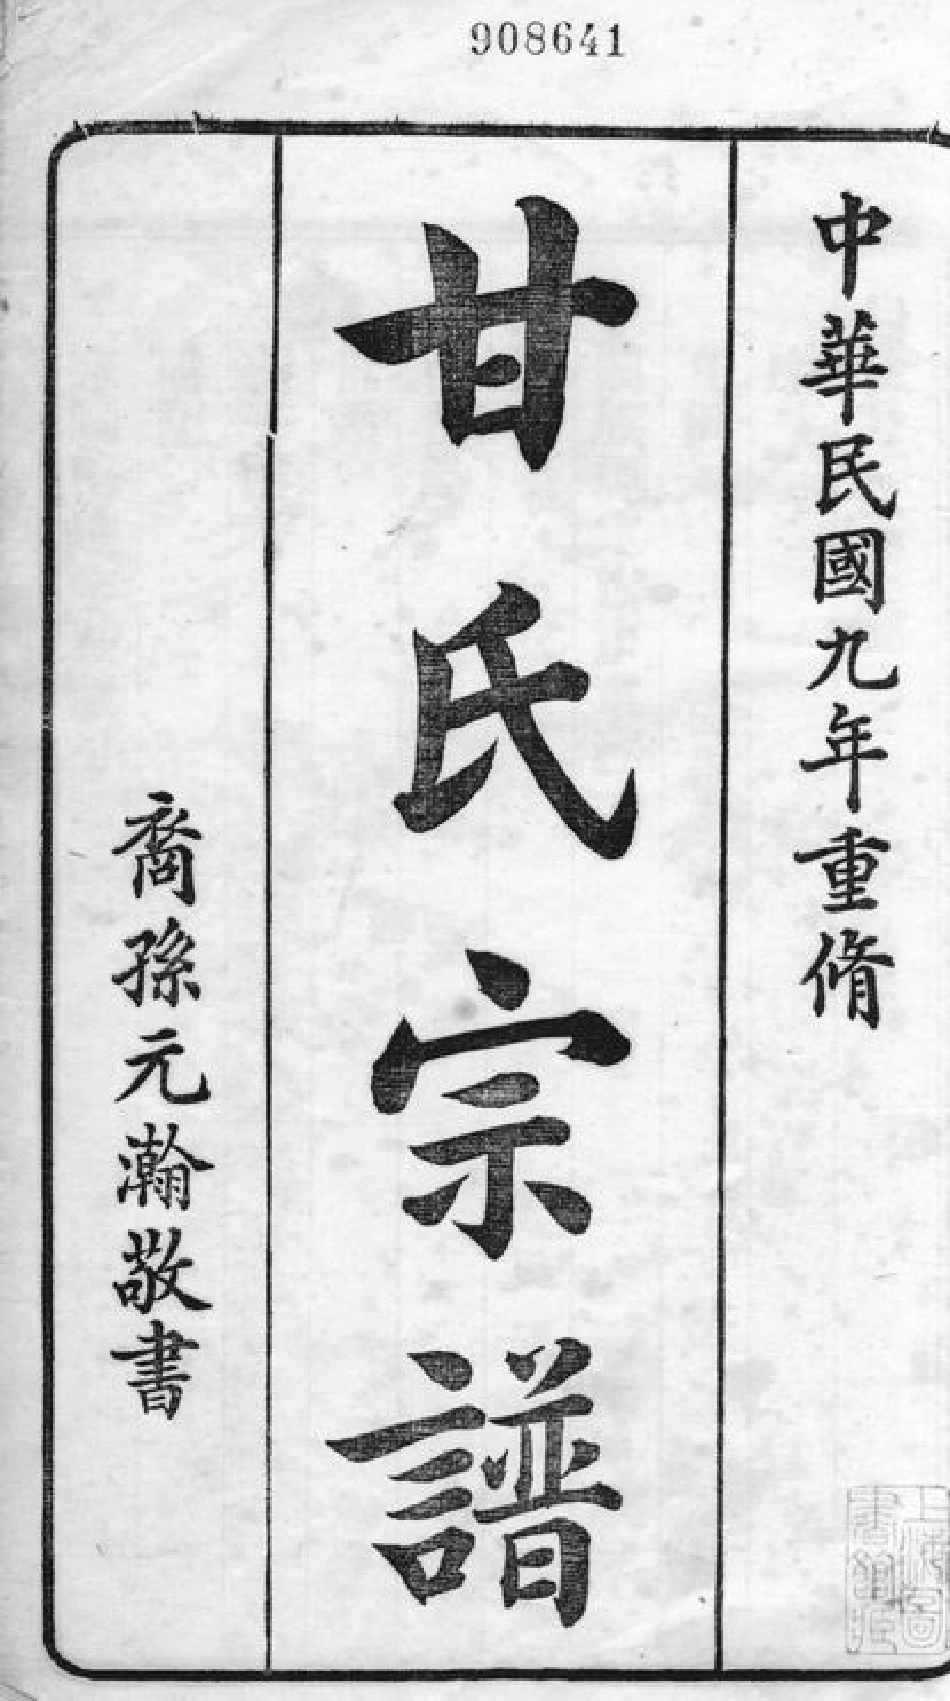 908641
中華民國九年重脩
甘氏宗譜
裔孫元瀚敬書
上海圖
書館藏